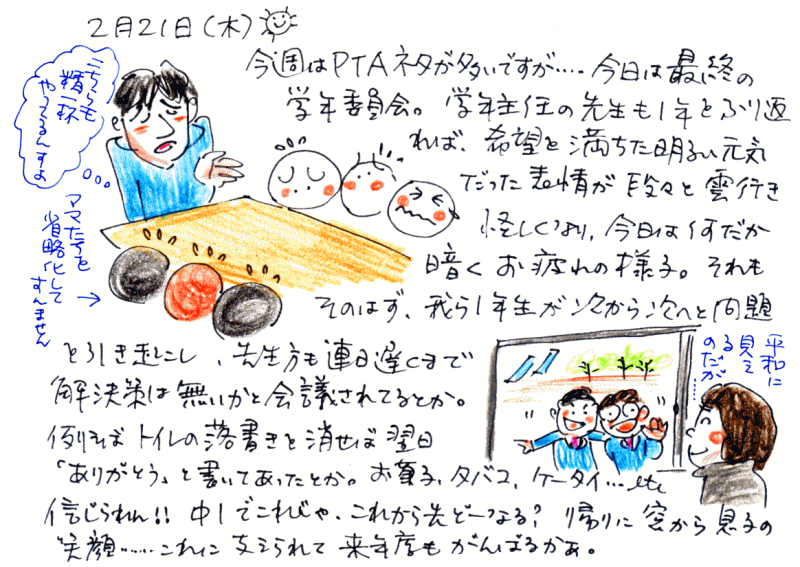 2月21日(木)
今週はPTAネタが多いですが….今日は最終の
学年委員会。学年主任の先生も1年をふり返
れば、希望を満ちた明るい元気
だった表情が段々と雲行き
怪しくなり、今日は何だか
暗くお疲れの様子。それも
そのはず、我ら1年生が次から次へと問題
を引き起こし、先生方も連日遅くまで
解決策は無いかと会議されてるとか。
例えばトイレの落書きを消せば翌日
「ありがとう」と書いてあったとか。お菓子、タバコ、ケータイ…etc
信じられん!!中1でこれじゃ、これから先どーなる?帰りに窓から息子の
笑顔……これに支えられて来年度もがんばるかぁ。
こちらも
精一杯
やってるんすよ
ママたちを
省略化して
すんません
平和に
見え
る
のだが…